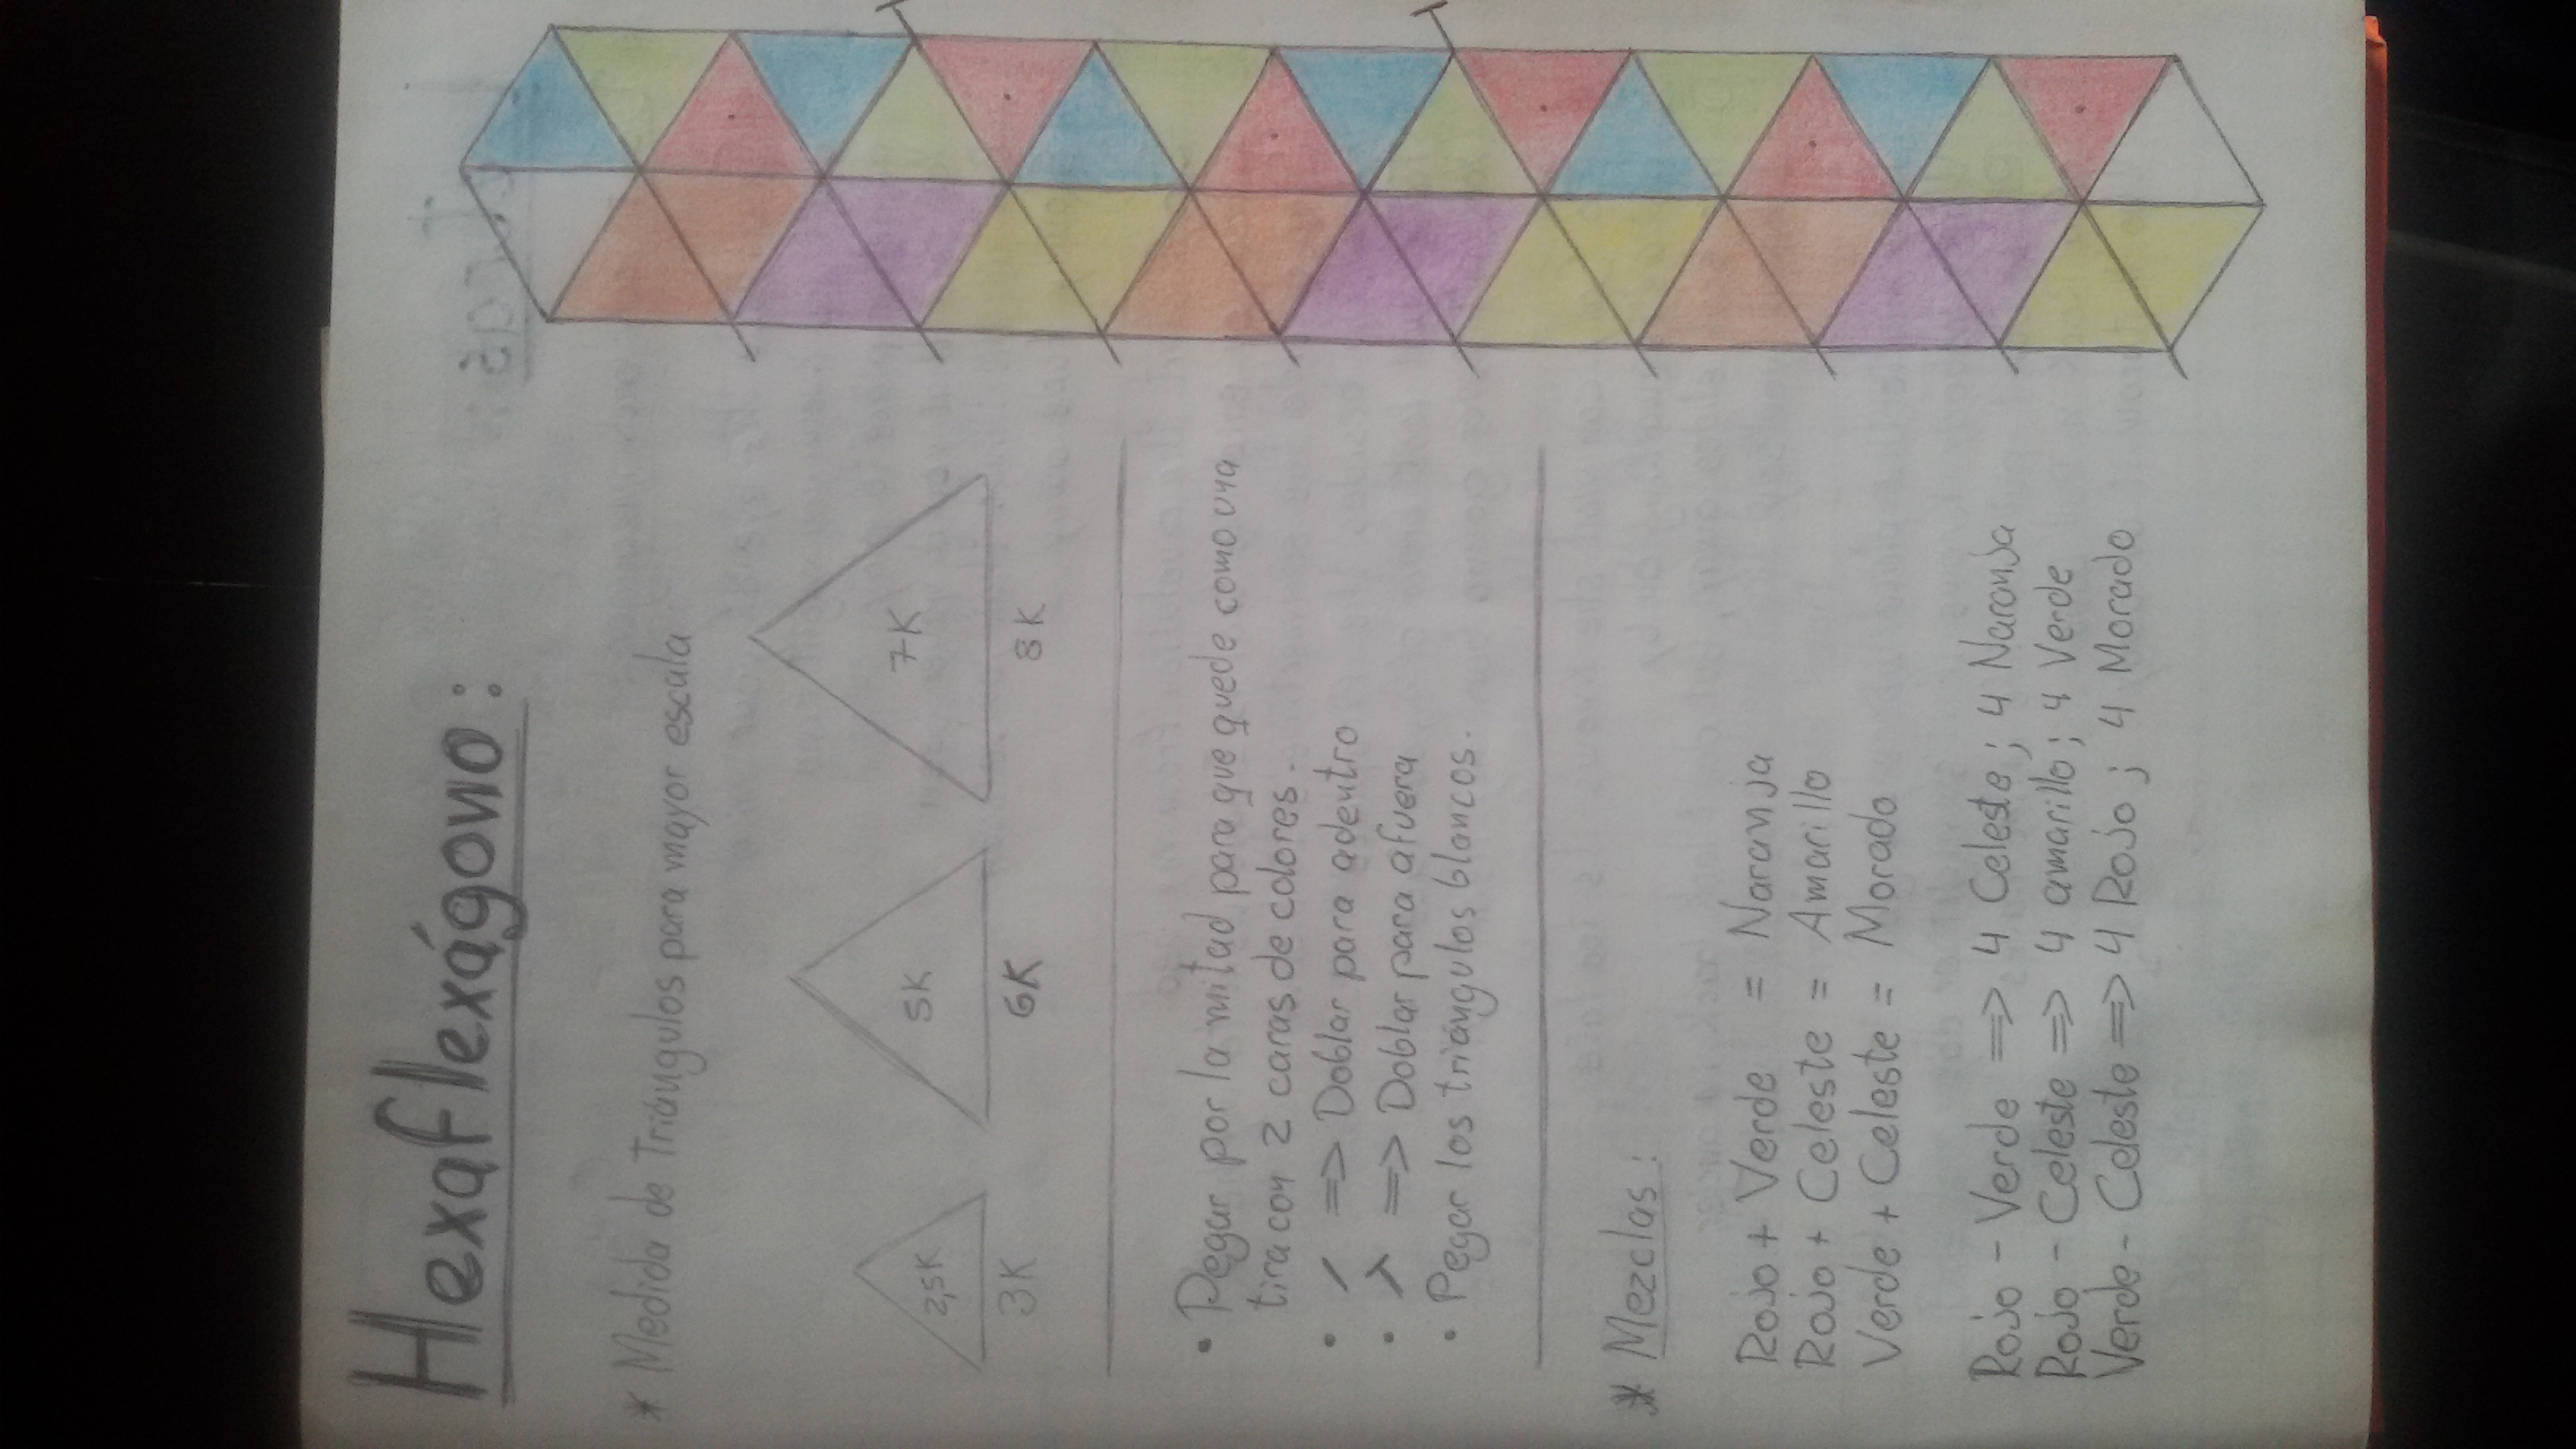 Hexaflexágono:
* Medida de Triángulos para mayor escala
2,5K
3K
5K
6K
7K
8K
• Pegar por la mitad para que quede como una
tira con 2 caras de colores.
• / => Doblar para adentro
• => Doblar para afuera
• Pegar los triángulos blancos.
* Mezclas:
Rojo + Verde = Naranja
Rojo + Celeste = Amarillo
Verde + Celeste = Morado
Rojo - Verde => 4 Celeste; 4 Naranja
Rojo - Celeste => 4 amarillo; 4 Verde
Verde - Celeste => 4 Rojo; 4 Morado